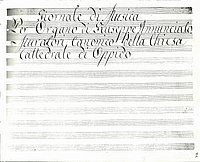 Giornale di Musica
Per Organo di Giuseppe Annunciato
Muratori Canonico Della Chiesa
Cattedrale di Oppido